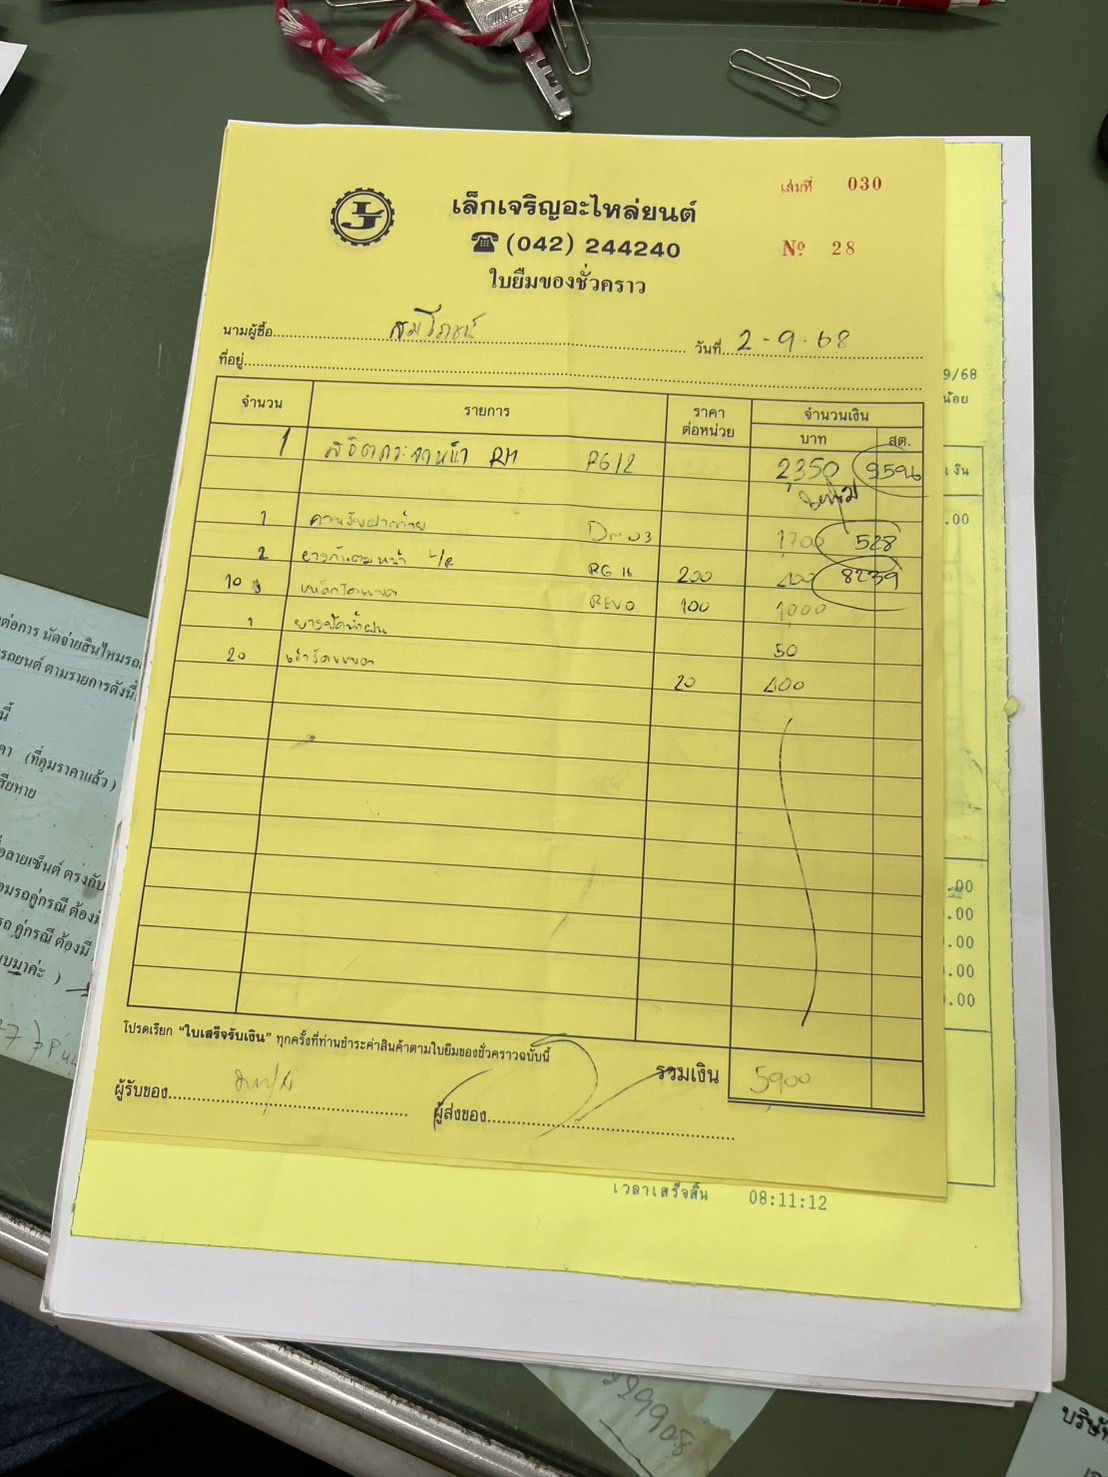 LJ
เล็กเจริญอะไหล่ยนต์
เล่มที่ 030
☎ (042) 244240
№ 28
ใบยืมของชั่วคราว
นามผู้ซื้อ สมโภชน์ วันที่ 2-9-68
ที่อยู่
จำนวน รายการ ราคาต่อหน่วย จำนวนเงิน
บาท สต.
1 RH RG12 2,350 9596
1 1700 528
2 ยางกันโคลนหน้า L/R RG 16 200 400 8239
10 REVO 100 1000
1 ยางปัดน้ำฝน 50
20
20 400
โปรดเรียก "ใบเสร็จรับเงิน" ทุกครั้งที่ท่านชำระค่าสินค้าตามใบยืมของชั่วคราวฉบับนี้
รวมเงิน 5900
ผู้รับของ
ผู้ส่งของ
เวลาเสร็จสิ้น 08:11:12
9/68
น้อย
เงิน
.00
.00
.00
.00
.00
.00
ต่อการ นัดจ่ายสินไหมรถ
รถยนต์ ตามรายการดังนี้
นี้
คา (ที่คุมราคาแล้ว)
สียหาย
อลายเซ็นต์ ตรงกับ
อมรถคู่กรณี ต้องมี
รถ คู่กรณี ต้องมี
บมาค่ะ )
บริษัท